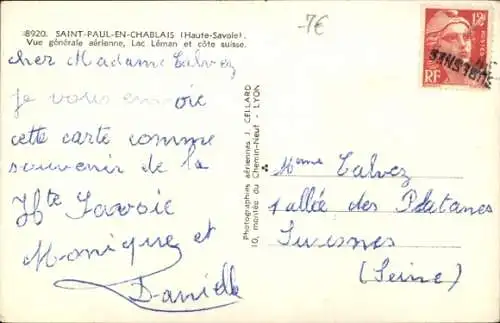 8920. SAINT-PAUL-EN-CHABLAIS (Haute-Savoie).
Vue générale aérienne, Lac Léman et côte suisse.
-7€
cher Madame Talvez
je vous envoie
cette carte comme
souvenir de la
Hte Savoie
Monique et
Danielle
Photographies aériennes J. CELLARD
10, montée du Chemin-Neuf - LYON
12F
POSTES
RF
SURESNES
Mme Talvez
1 allée des Platanes
Suresnes
(Seine)